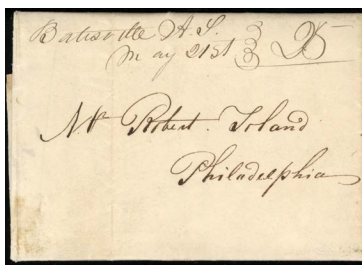 Batesville A.T. 25
May 21st
Mr. Robert Toland
Philadelphia